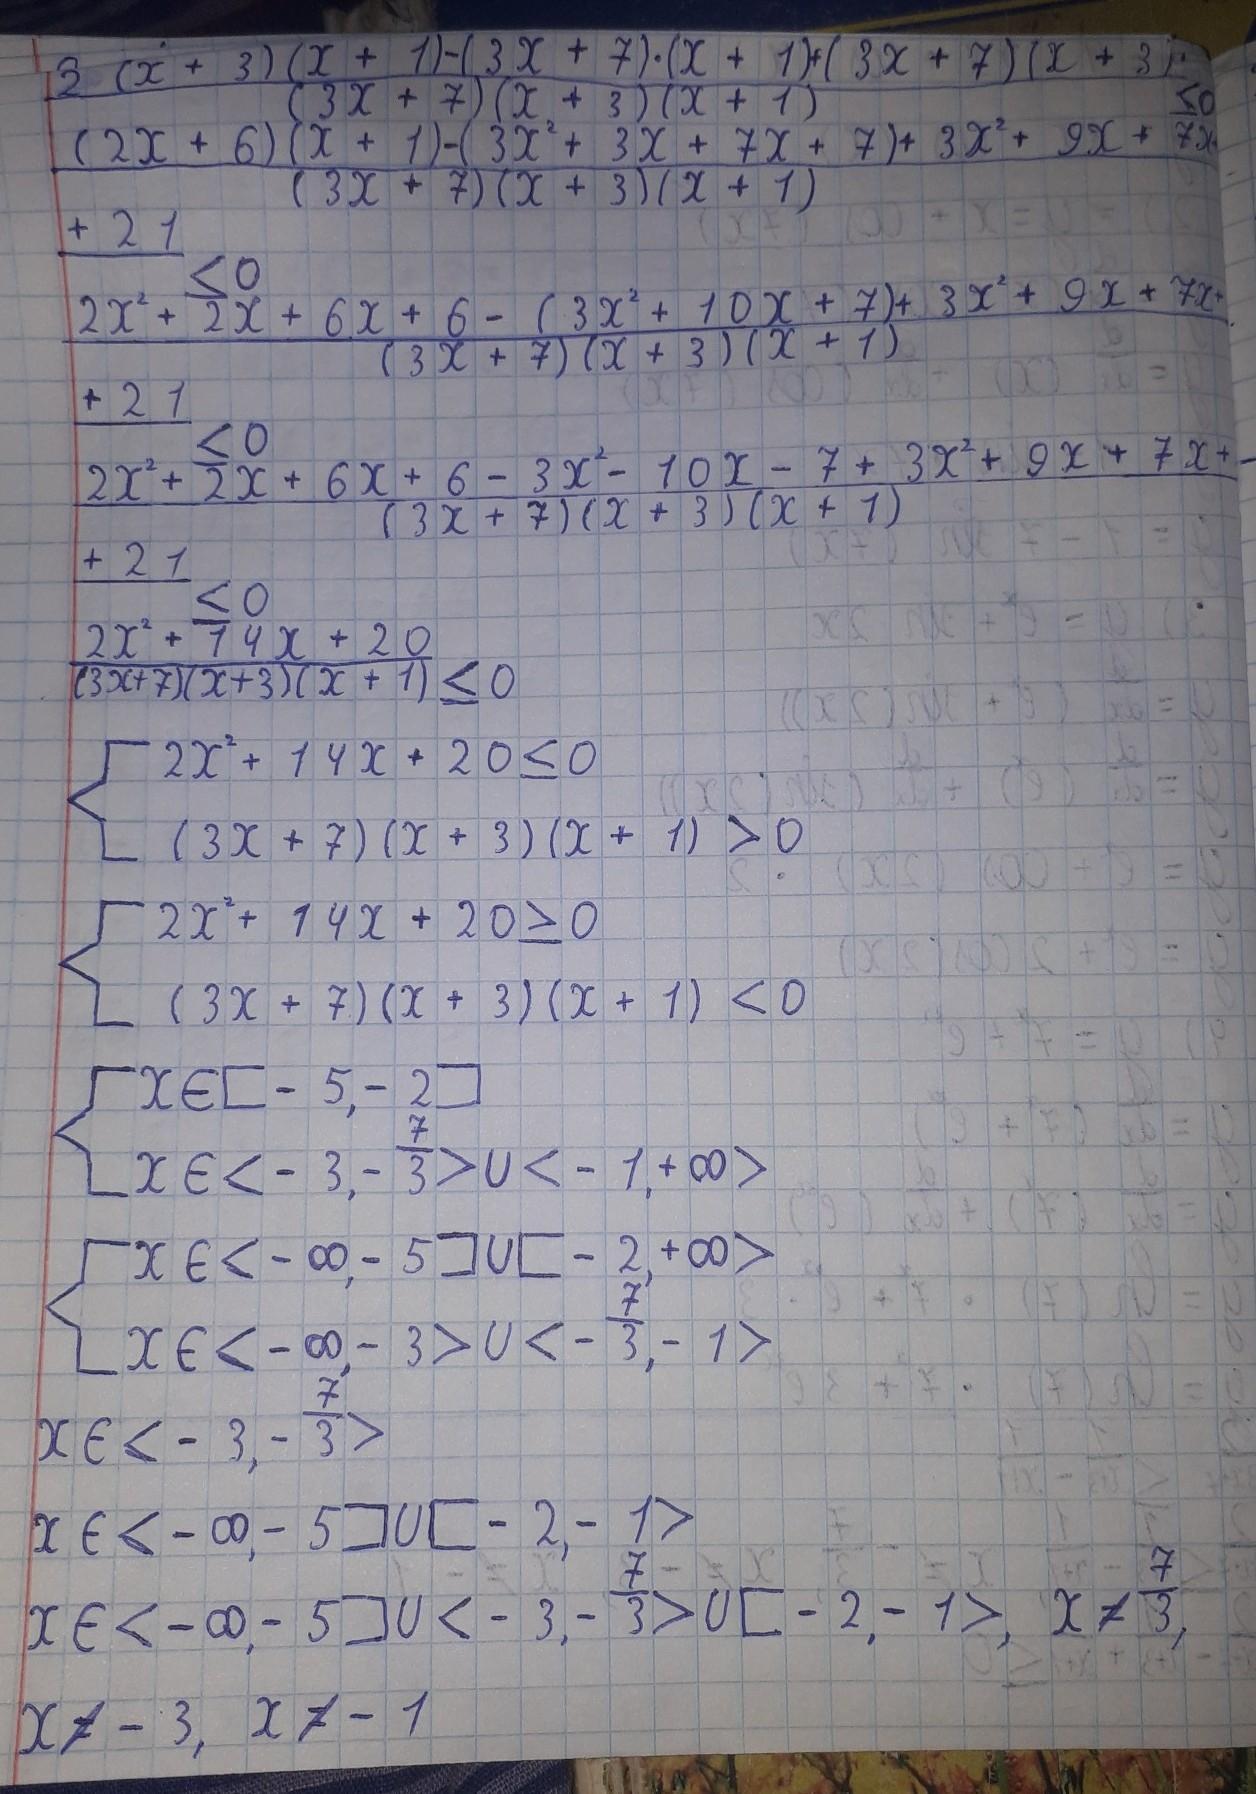 3 (x + 3)(x + 1)-(3x + 7)·(x + 1)+(3x + 7)(x + 3)
(3x + 7)(x + 3)(x + 1) ≤0
(2x + 6)(x + 1)-(3x² + 3x + 7x + 7)+ 3x² + 9x + 7x+
(3x + 7)(x + 3)(x + 1)
+ 21
≤0
2x² + 2x + 6x + 6 - (3x² + 10x + 7)+ 3x² + 9x + 7x+
(3x + 7)(x + 3)(x + 1)
+ 21
≤0
2x² + 2x + 6x + 6 - 3x² - 10x - 7 + 3x² + 9x + 7x +
(3x + 7)(x + 3)(x + 1)
+ 21
≤0
2x² + 14x + 20
(3x+7)(x+3)(x + 1) ≤ 0
2x² + 14x + 20 ≤ 0
(3x + 7)(x + 3)(x + 1) > 0
2x² + 14x + 20 ≥ 0
(3x + 7)(x + 3)(x + 1) < 0
x ∈ [- 5, - 2]
x ∈ < - 3, - 7/3 > ∪ < - 1, + ∞ >
x ∈ < - ∞, - 5] ∪ [- 2, + ∞ >
x ∈ < - ∞, - 3 > ∪ < - 7/3, - 1 >
x ∈ < - 3, - 7/3 >
x ∈ < - ∞, - 5] ∪ [- 2, - 1 >
x ∈ < - ∞, - 5] ∪ < - 3, - 7/3 > ∪ [- 2, - 1 >, x ≠ 7/3,
x ≠ - 3, x ≠ - 1